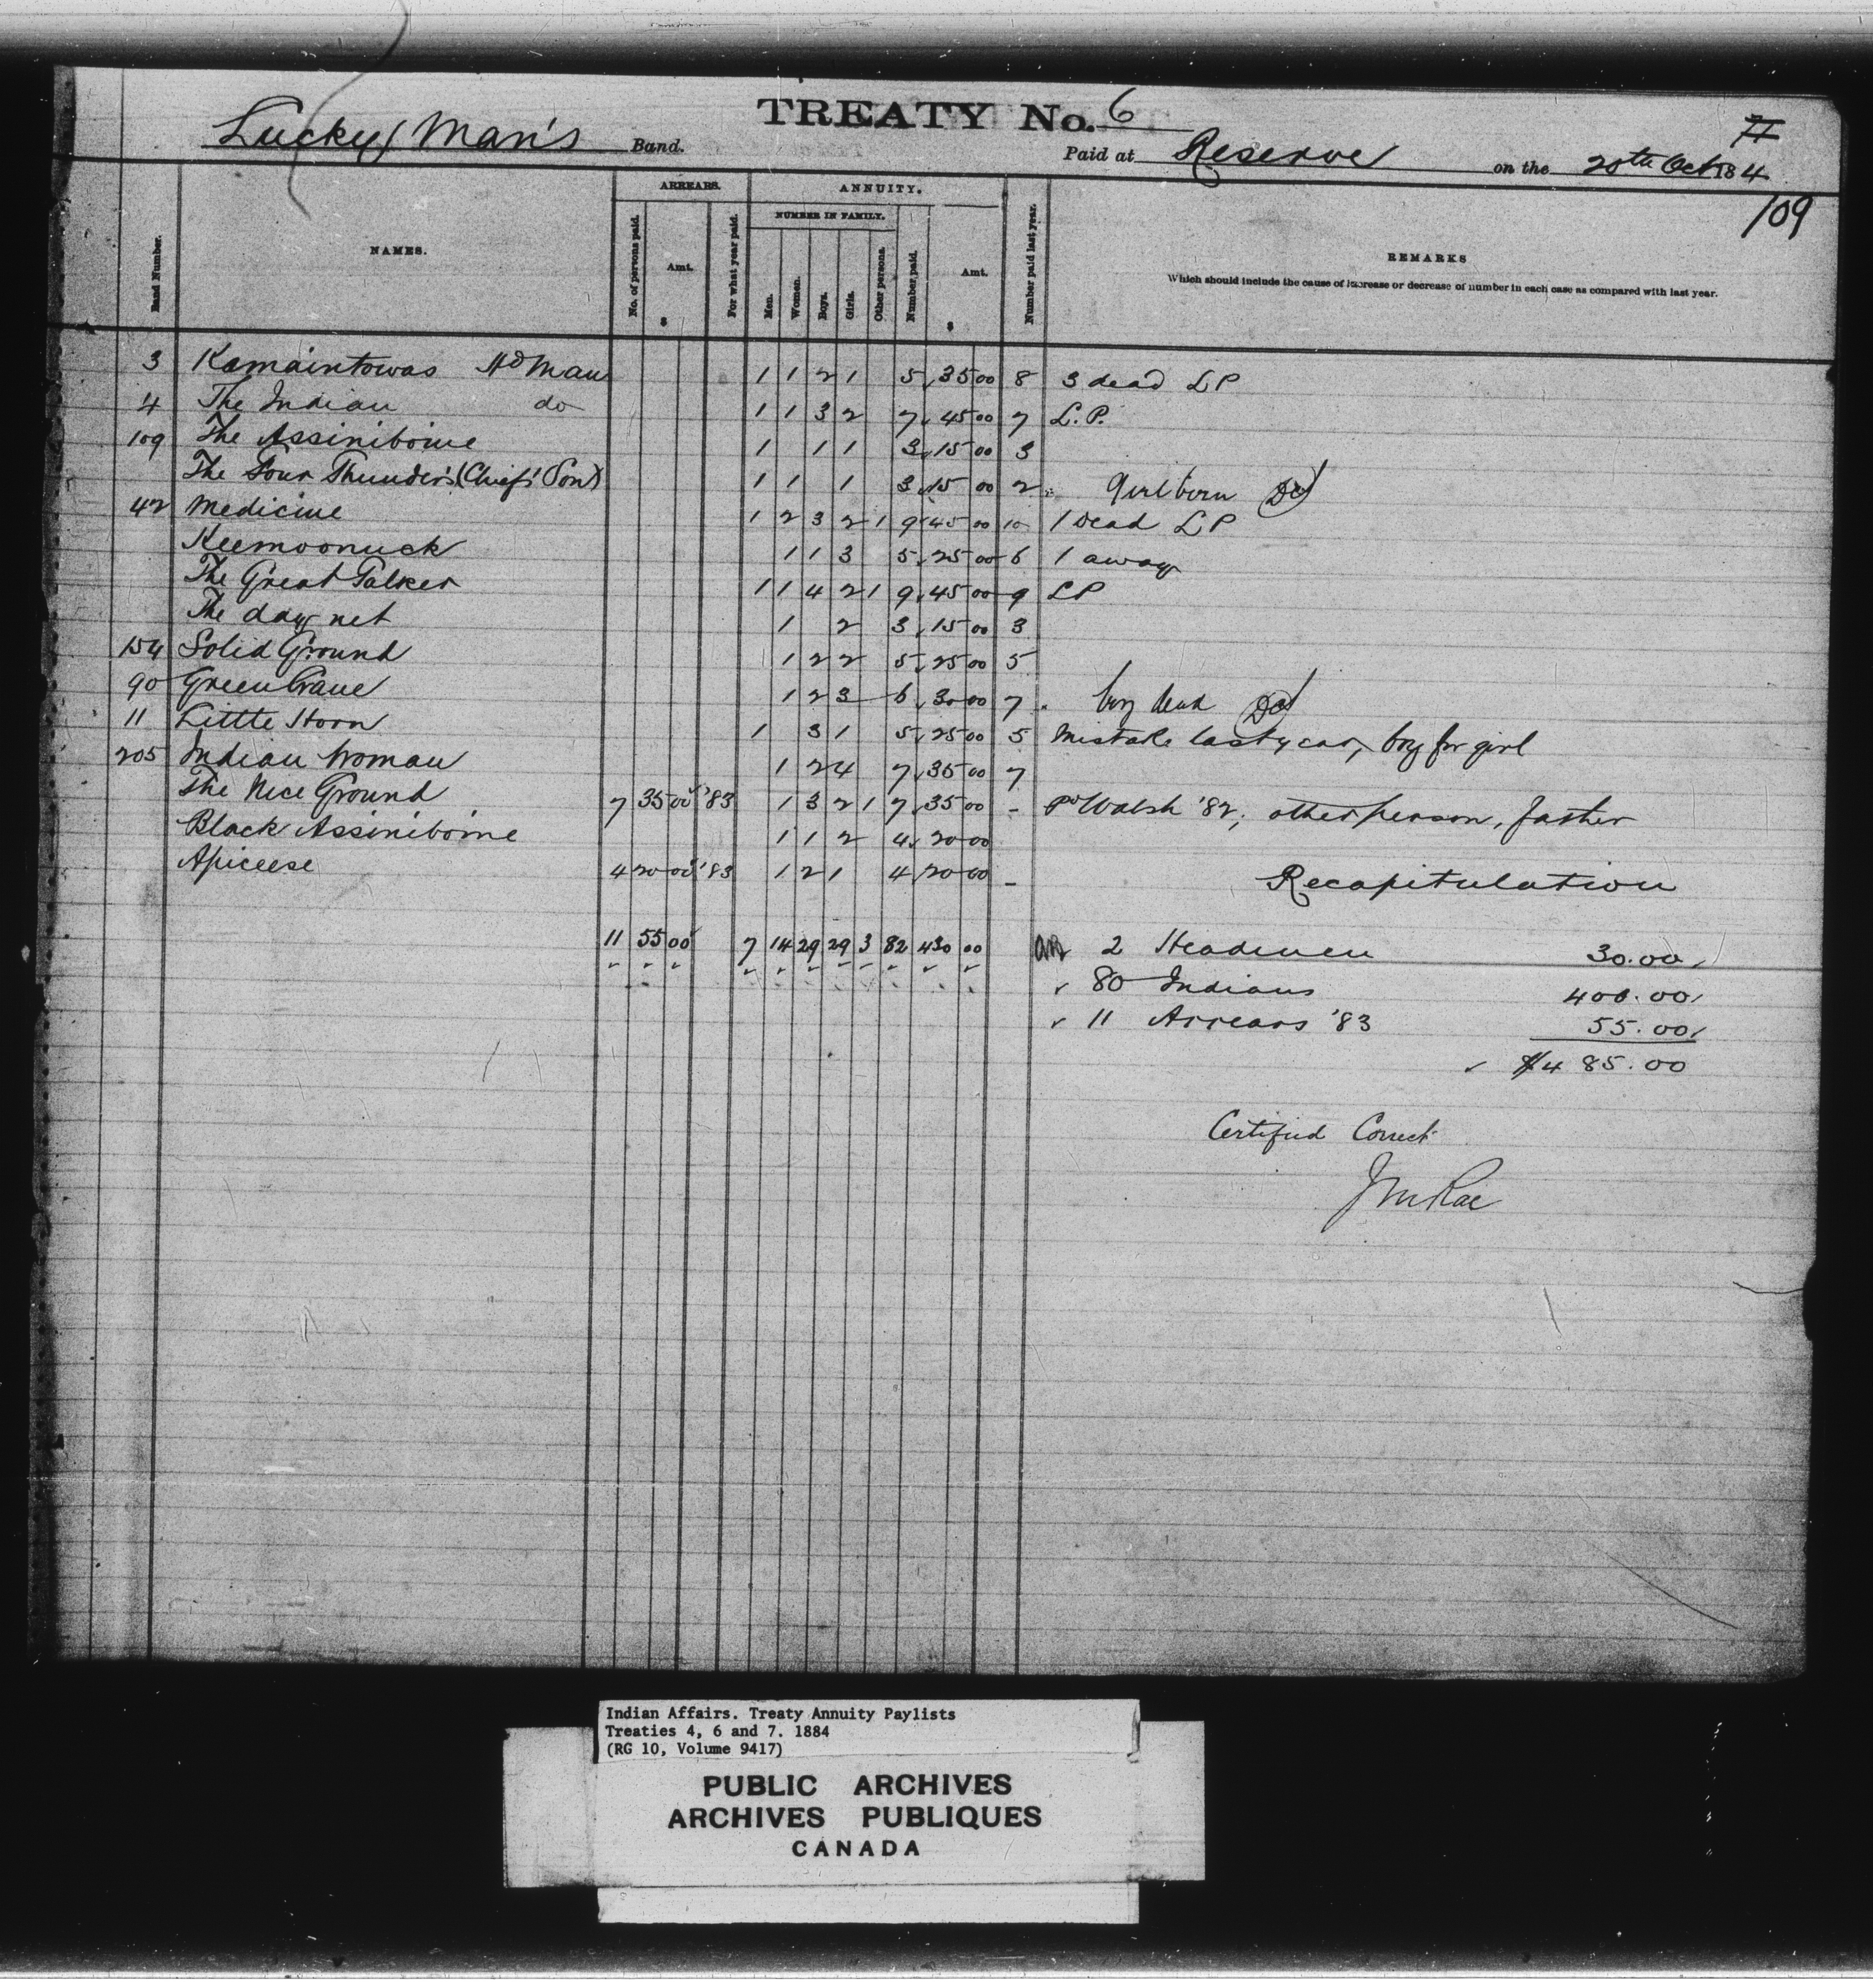 TREATY No. 6
Lucky Man's Band. Paid at Reserve on the 20th Oct 1884
109
Band Number. NAMES. ARREARS. No. of persons paid. Amt. $ For what year paid. ANNUITY. NUMBER IN FAMILY. Men. Women. Boys. Girls. Other persons. Number paid. Amt. $ Number paid last year. REMARKS
Which should include the cause of increase or decrease of number in each case as compared with last year.
3 Kamaintowas Hd Man 1 1 2 1 5 35 00 8 3 dead L P
4 The Indian do 1 1 3 2 7 45 00 7 L.P.
109 The Assiniboine 1 1 1 3 15 00 3
The Four Thunders (Chief's Son) 1 1 1 3 15 00 2 girl born
42 Medicine 1 2 3 2 1 9 45 00 10 1 Dead L P
Keemoonuck 1 1 3 5 25 00 6 1 away
The Great Talker 1 1 4 2 1 9 45 00 9 L P
The day net 1 2 3 15 00 3
154 Solid Ground 1 2 2 5 25 00 5
90 Green Crane 1 2 3 6 30 00 7 boy dead
11 Little Horn 1 3 1 5 25 00 5 Mistake last year, boy for girl
205 Indian Woman 1 2 4 7 35 00 7
The Nice Ground 7 35 00 '83 1 3 2 1 7 35 00 - Pd Walsh '82; other person, father
Black Assiniboine 1 1 2 4 20 00
Apiceese 4 20 00 '83 1 2 1 4 20 00 -
Recapitulation
11 55 00 7 14 29 29 3 82 430 00 2 Headmen 30.00
80 Indians 400.00
11 Arrears '83 55.00
$485.00
Certified Correct
J McRae
Indian Affairs. Treaty Annuity Paylists
Treaties 4, 6 and 7. 1884
(RG 10, Volume 9417)
PUBLIC ARCHIVES
ARCHIVES PUBLIQUES
CANADA